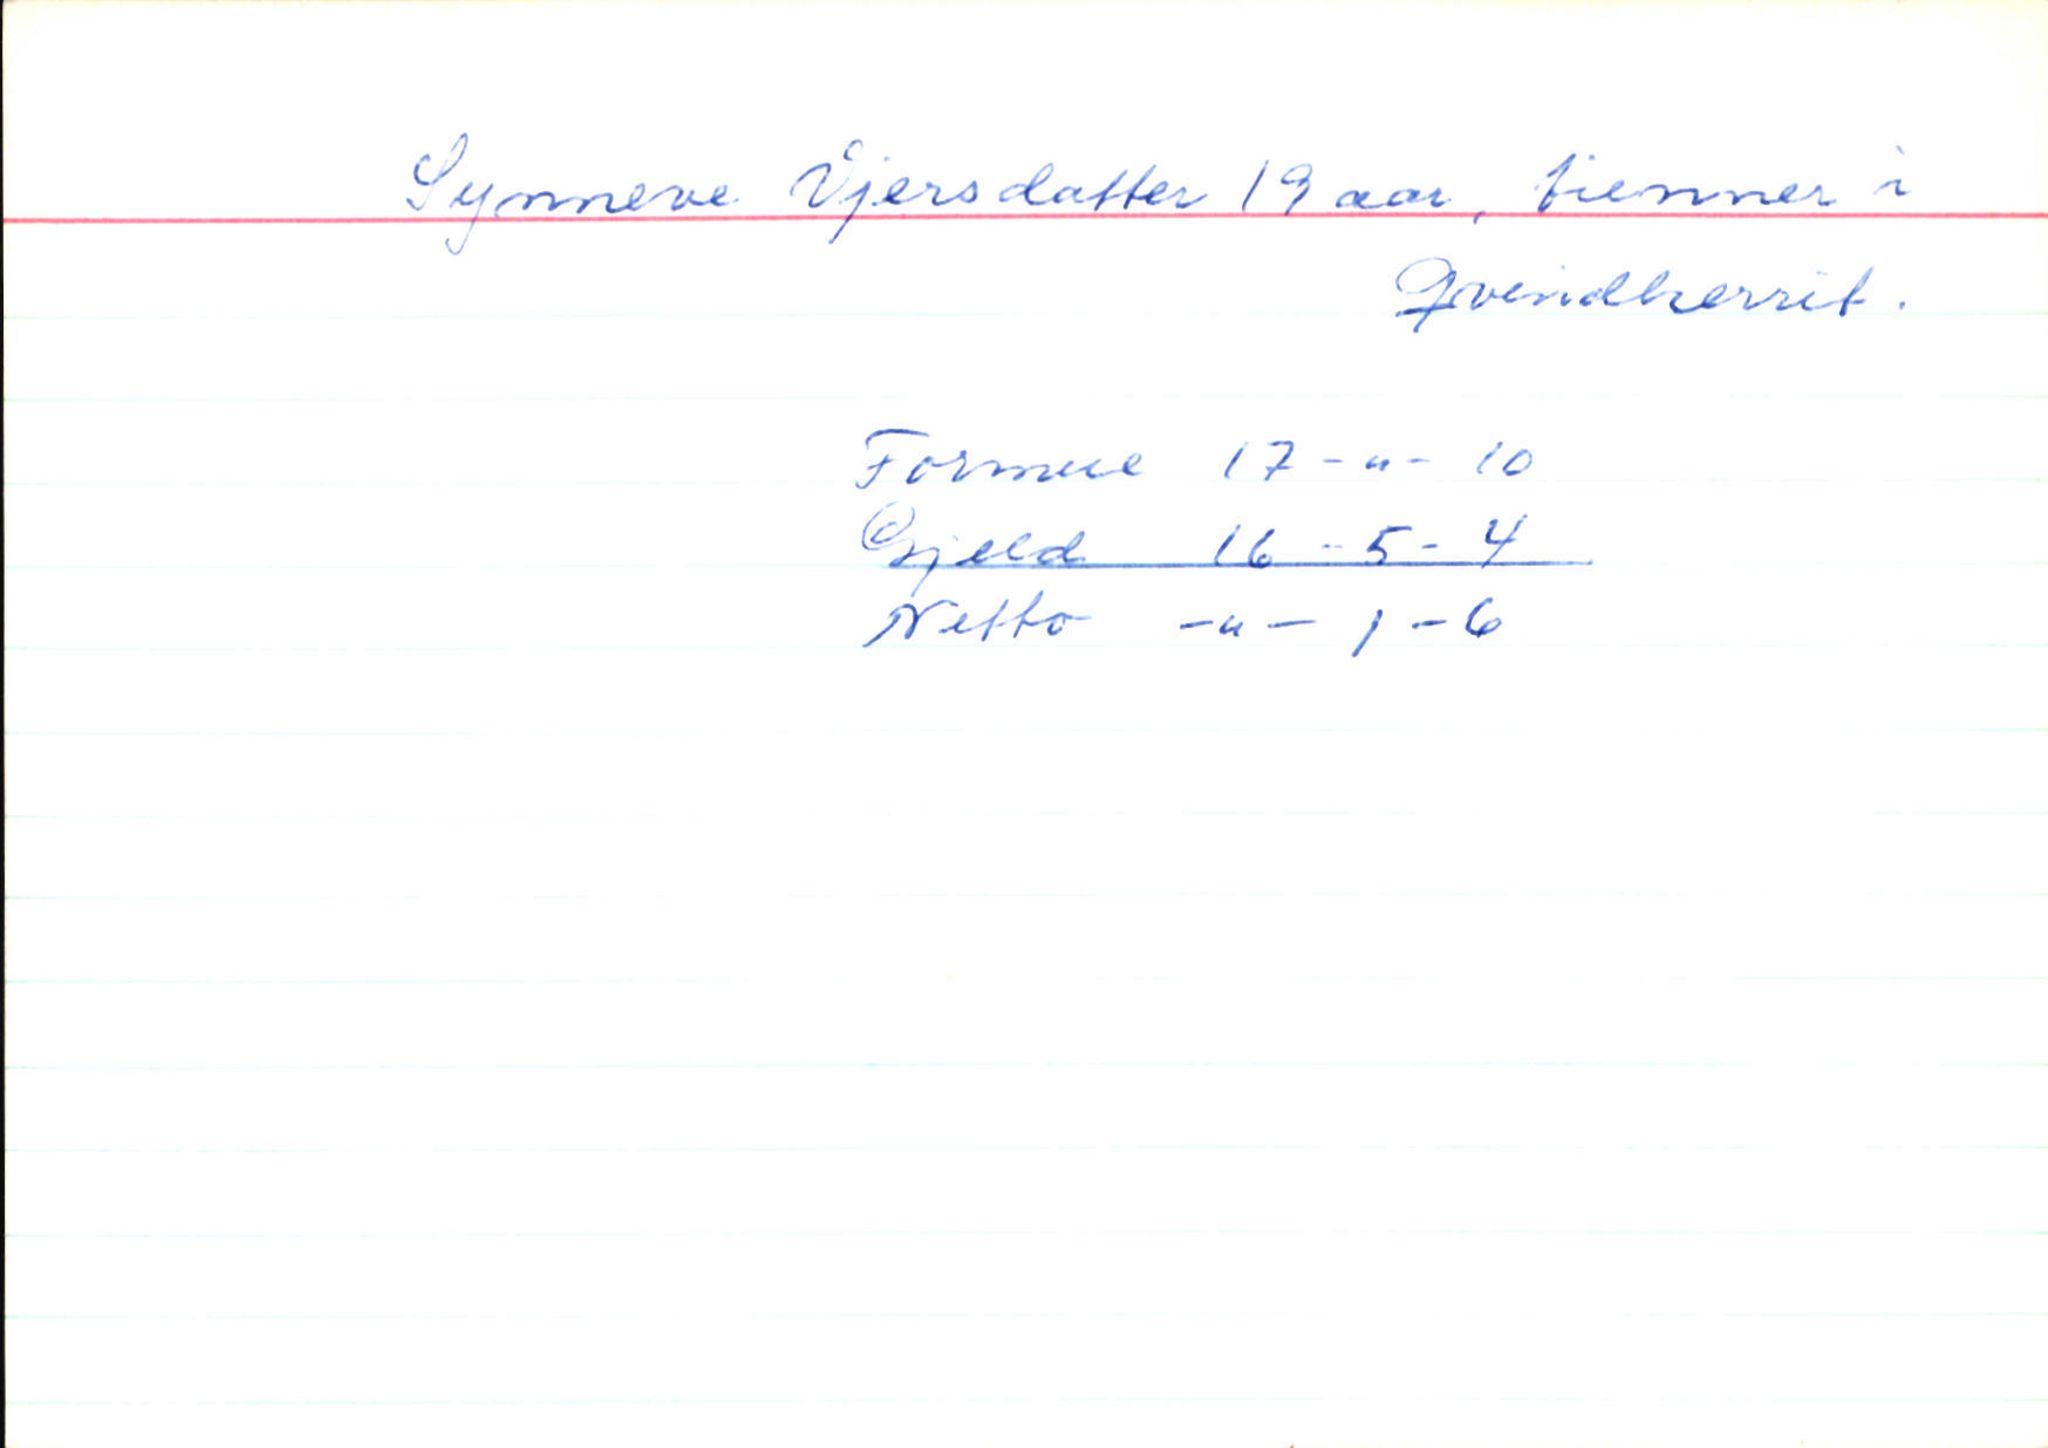 Synneve Vjersdatter 19 aar, tienner i
Qvindherrit.
Formue 17 - " - 10
Gjeld 16 - 5 - 4
Netto - " - 1 - 6